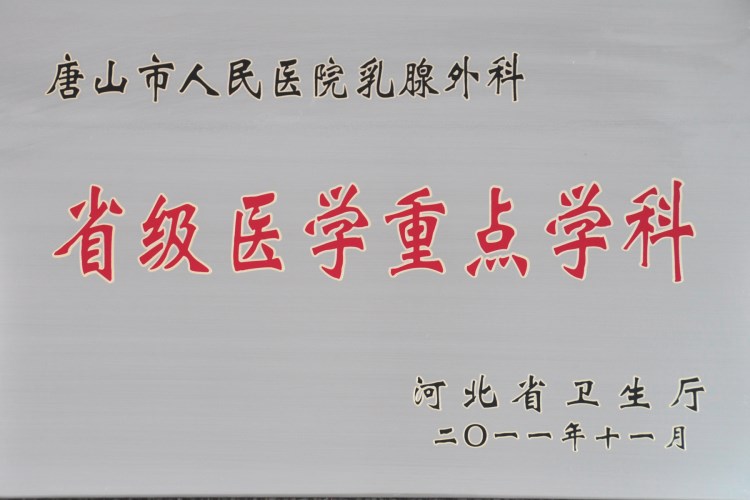 唐山市人民医院乳腺外科
省级医学重点学科
河北省卫生厅
二〇一一年十一月